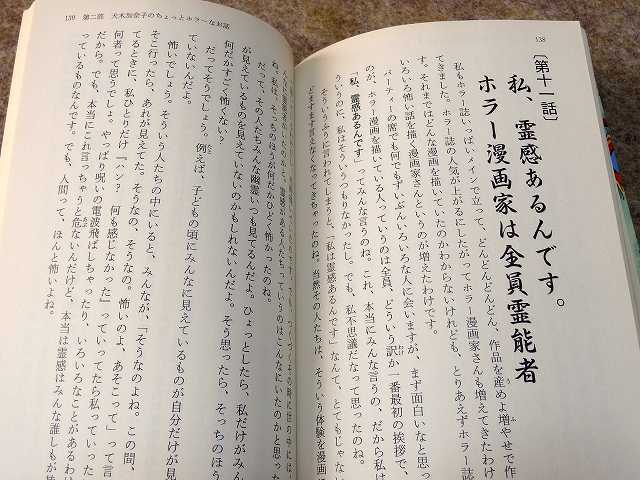 138
〔第十一話〕
私、霊感あるんです。
ホラー漫画家は全員霊能者
私もホラー誌いっぱいメインで立って、どんどんどんどん、作品を産めよ増やせで作
てきました。ホラー誌の人気が上がるにしたがってホラー漫画家さんも増えてきたわけ
す。それまではどんな漫画を描いていたのかわからないけれども、とりあえずホラー誌
いろいろ怖い話を描く漫画家さんというのが増えたわけです。
パーティーの席でも何でもずいぶんいろいろな人に会いますが、まず面白いなと思っ
のが、ホラー漫画を描いている人っていうのは全員、どういう訳か一番最初の挨拶で、
「私、霊感あるんです」ってみんな言うのね。これ、本当にみんな言うの、だから私は
ういうのに、私はそういうつもりなかったし。でも、私不思議だなって思って。
そういうふうに言われてしまうと、「私は霊感あるんです」なんて、とてもじゃない
ますます言えなくなってきちゃったのね。当然その人たちは、そういう体験を漫画に
139 第二部 犬木加奈子のちょっとホラーなお話
その時に世の中には、
んな霊感がある人たちっていうのはこんなにいたのかと思った
ね。私は、そっちのほうが何だかひどく怖かったのね。
だって、その人たちみんな幽霊いつも見てるんだよ。ひょっとしたら、私だけがみん
見えているものを見えていないのかもしれないんだよ。そう思ったら、そっちのほう
何だかすごく怖くない?
だってそうでしょう。例えば、子どもの頃にみんなに見えているものが自分だけが見
ていないんだよ。
怖いでしょう。そういう人たちの中にいると、みんなが、「そうなのよね。この間、
そこ行ったら、あれが見えてた。そうなの、そうなの。怖いのよ、あそこって」って言
てるときに、私ひとりだけ「ハン? 何も感じなかった」っていってたら私っていった
何者って思うでしょ。やっぱり呪いの電波飛ばしちゃったり、いろいろなことがあるわけ
だから。でも、本当にこれ言っちゃうと危ないんだけど、本当は霊感はみんな誰しもが
っているものなんです。でも、人間って、ほんと怖いよね。